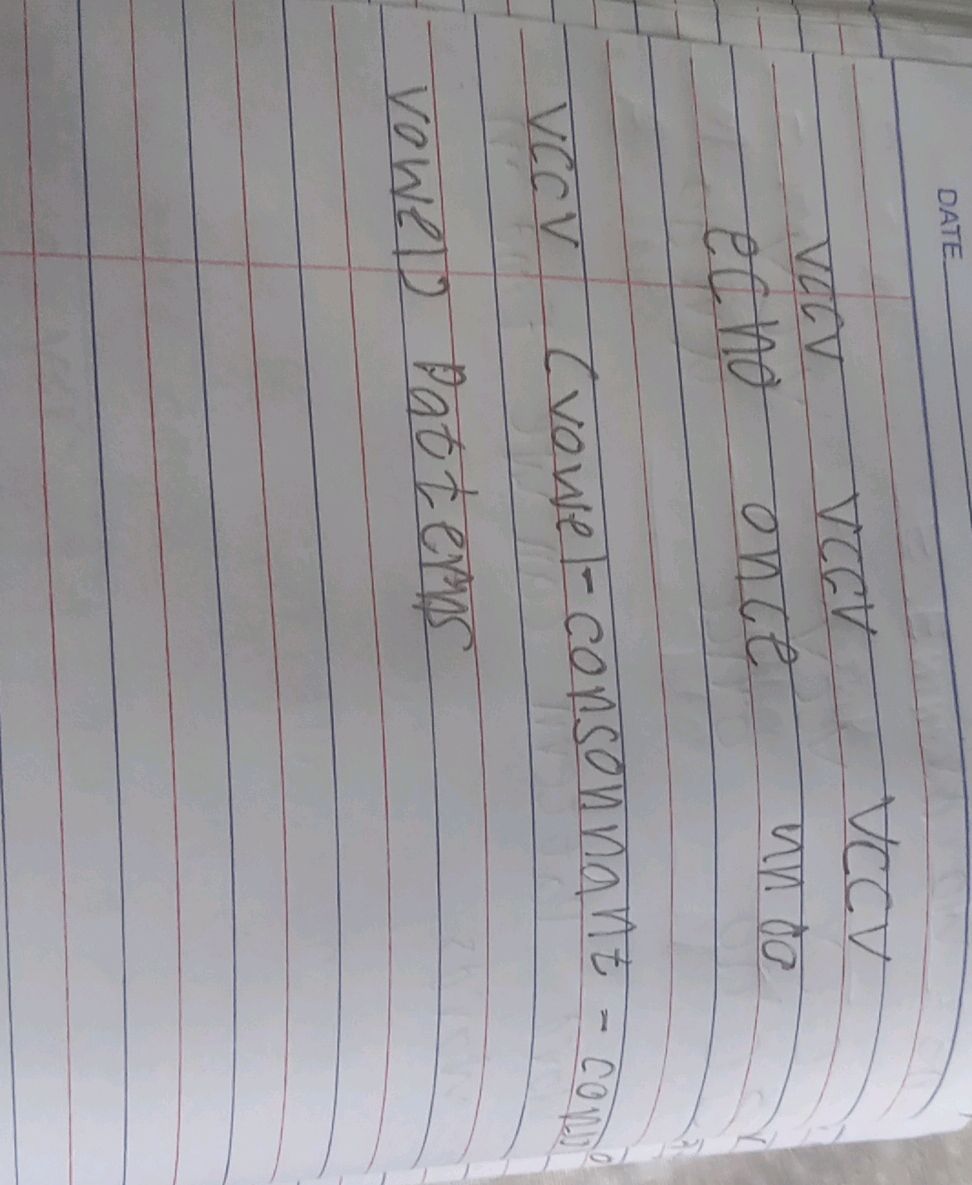 DATE
VCCV VCCV VCCV
echo once undo
VCCV (vowel-consonnant-conso
vowel) Patterns